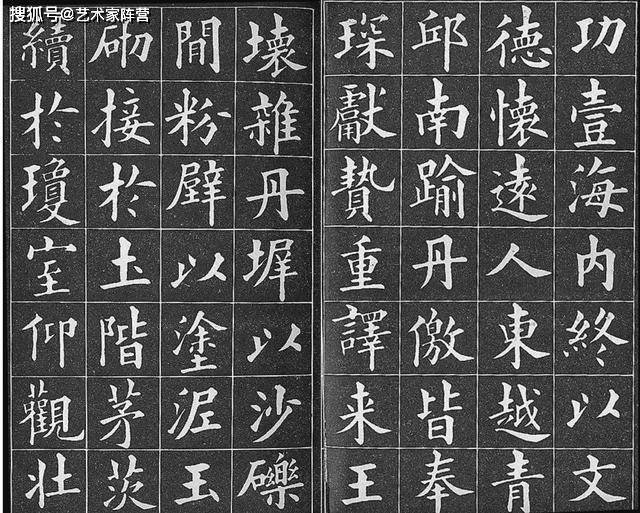 搜狐号@艺术家阵营
功壹海内終以文
德懷遠人東越青
邱南踰丹儌皆奉
琛獻贄重譯来王
壞雜丹墀以沙礫
間粉壁以塗泥玉
砌接於土階茅茨
續於瓊室仰觀壮